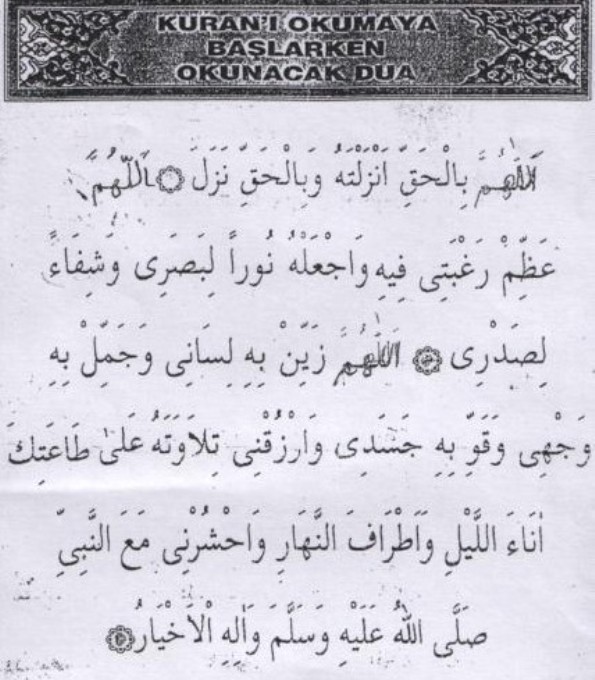 KURAN'I OKUMAYA
BAŞLARKEN
OKUNACAK DUA
اَللّٰهُمَّ بِالْحَقِّ اَنْزَلْتَهُ وَبِالْحَقِّ نَزَلَ ۞ اَللّٰهُمَّ
عَظِّمْ رَغْبَتِى فِيهِ وَاجْعَلْهُ نُوراً لِبَصَرِى وَشِفَاءً
لِصَدْرِى ۞ اَللّٰهُمَّ زَيِّنْ بِهِ لِسَانِى وَجَمِّلْ بِهِ
وَجْهِى وَقَوِّ بِهِ جَسَدِى وَارْزُقْنِى تِلَاوَتَهُ عَلٰى طَاعَتِكَ
اٰنَاءَ اللَّيْلِ وَاَطْرَافَ النَّهَارِ وَاحْشُرْنِى مَعَ النَّبِىِّ
صَلَّى اللّٰهُ عَلَيْهِ وَسَلَّمَ وَاٰلِهِ الْاَخْيَارُ ۞